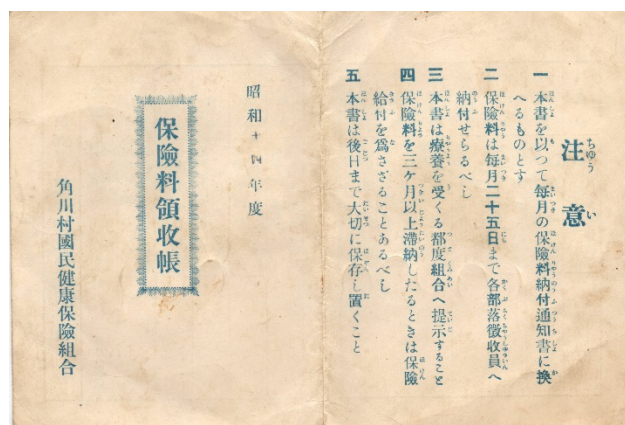 注意
一 本書を以つて每月の保險料納付通知書に換
へるものとす
二 保險料は每月二十五日まで各部落徵收員へ
納付せらるべし
三 本書は療養を受くる都度組合へ提示すること
四 保險料を三ヶ月以上滯納したるときは保險
給付を爲さざることあるべし
五 本書は後日まで大切に保存し置くこと
昭和十四年度
保險料領收帳
角川村國民健康保險組合